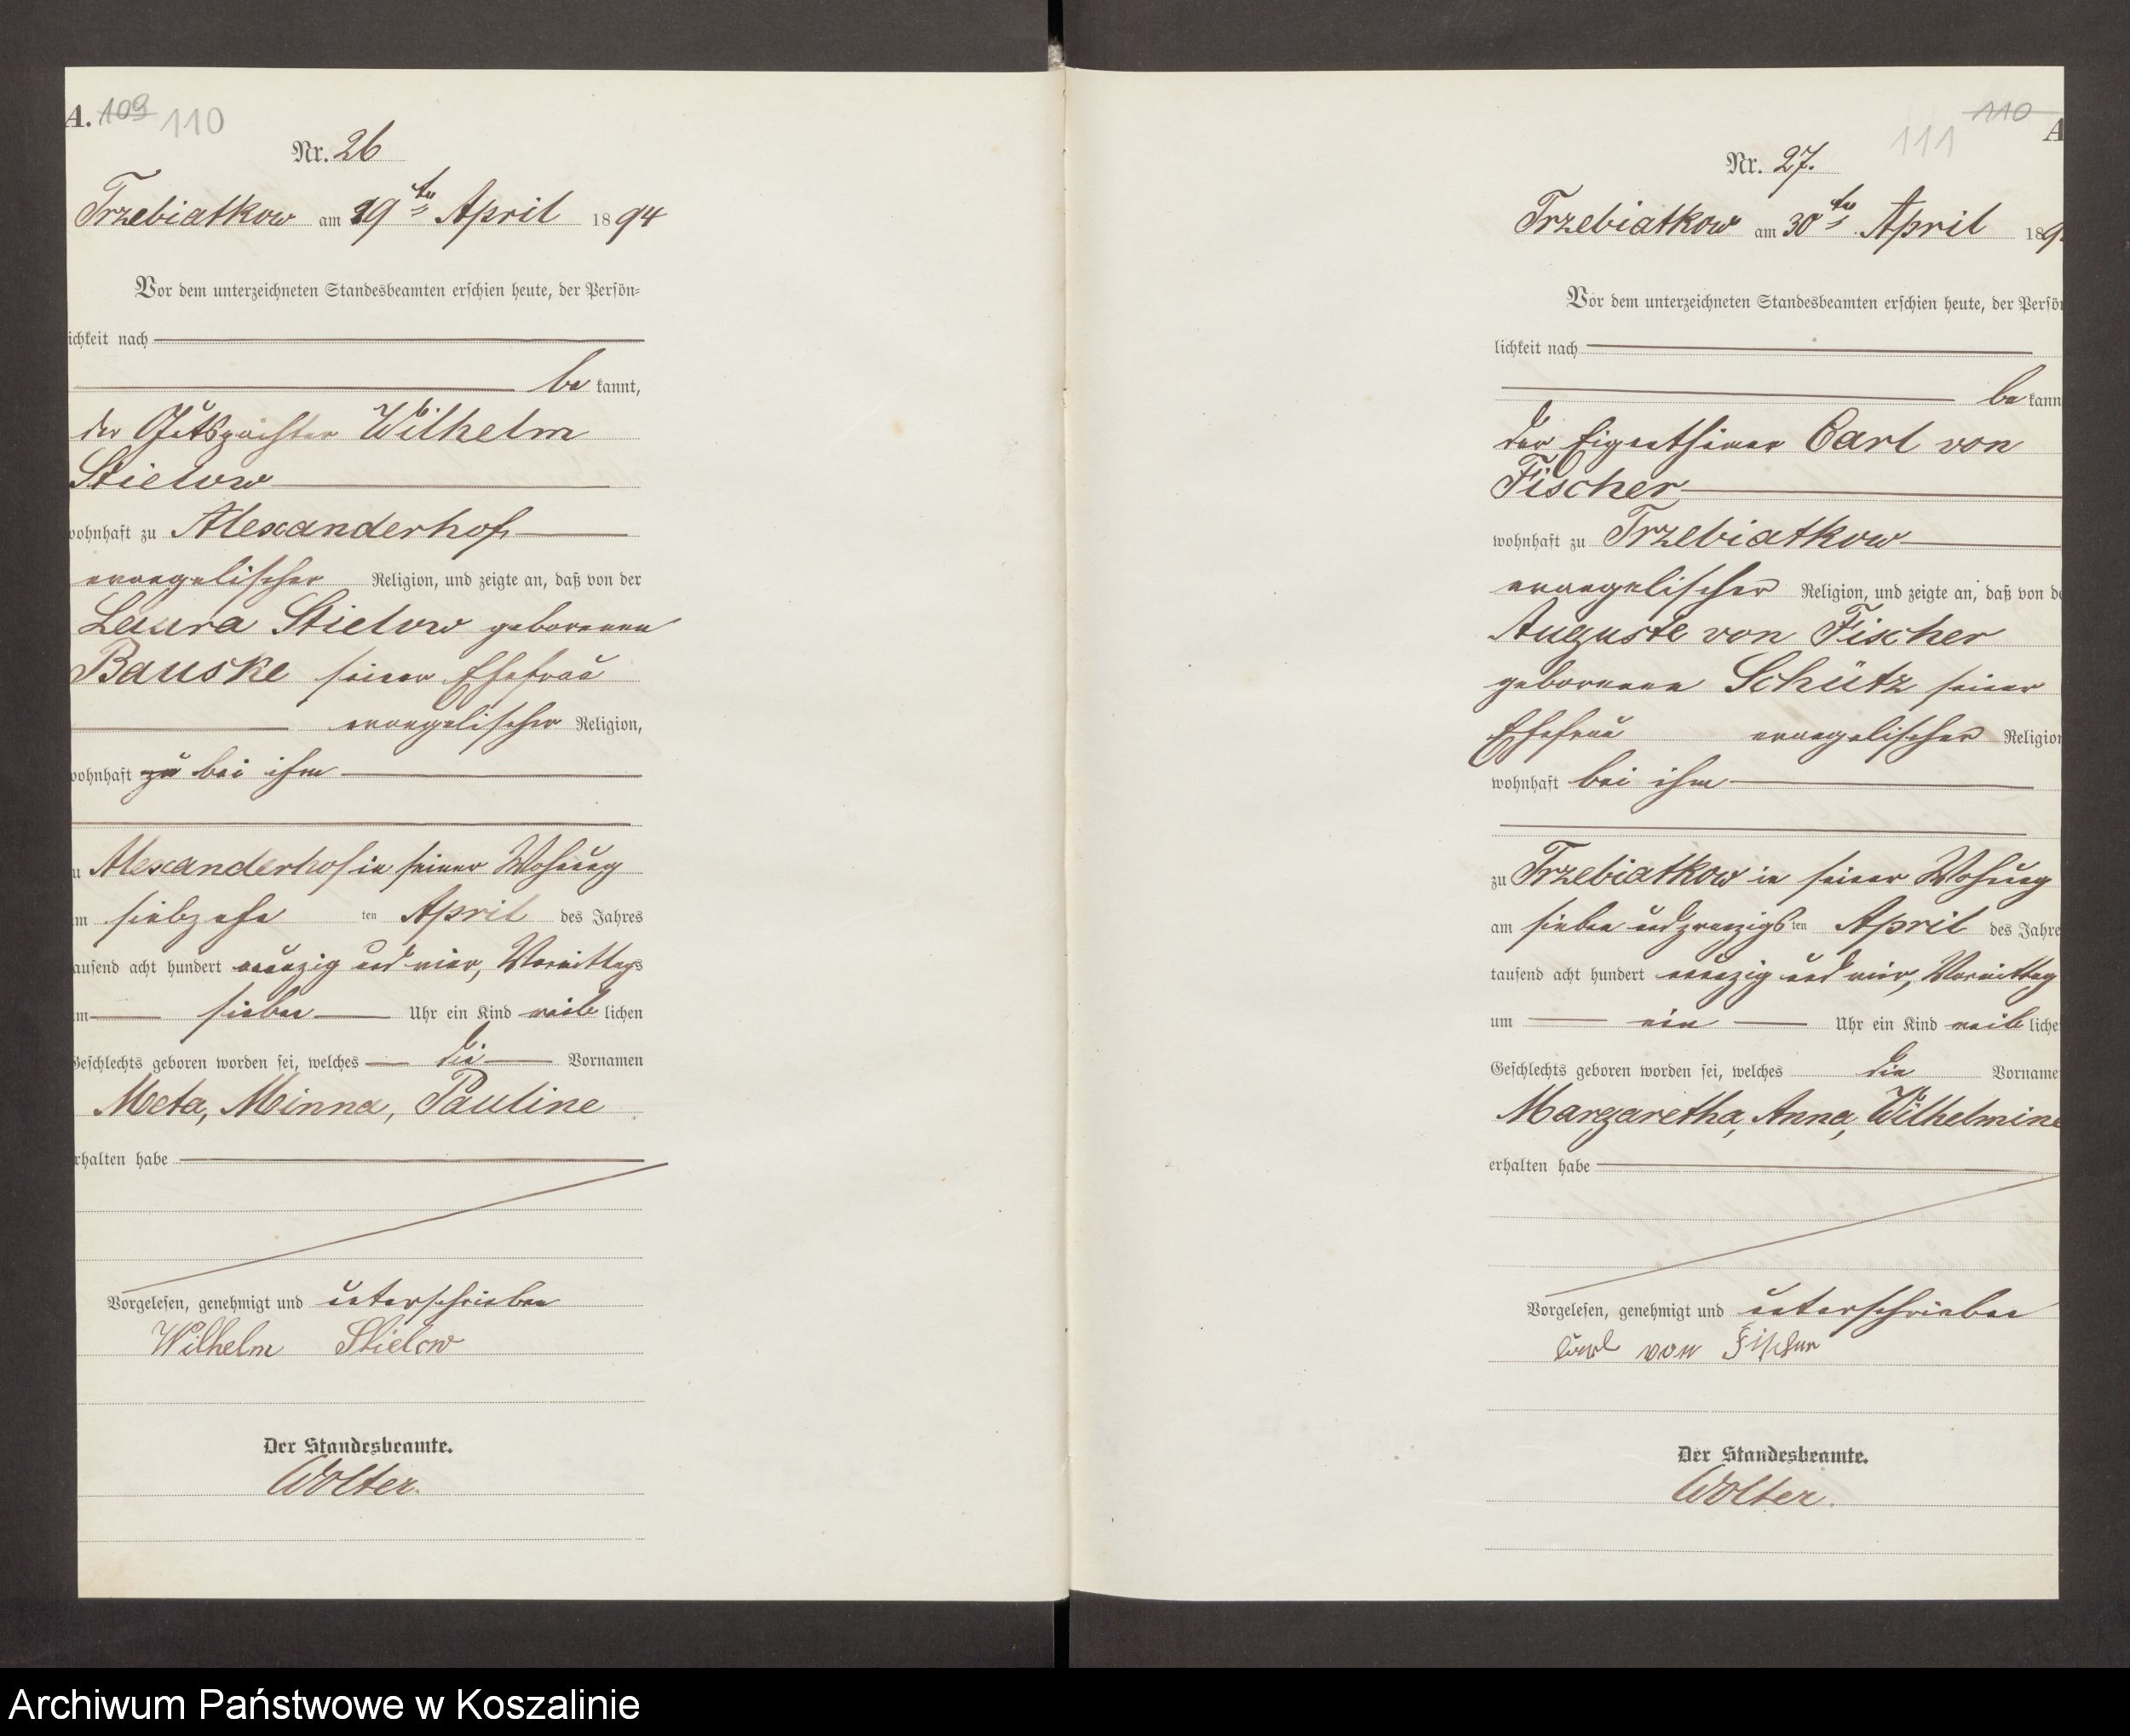 A. 109 110
Nr. 26
Trzebiatkow am 19ten April 1894
Vor dem unterzeichneten Standesbeamten erschien heute, der Persön-
ichkeit nach
be kannt,
der Gutspächter Wilhelm
Stielow
wohnhaft zu Alexanderhof,
evangelischer Religion, und zeigte an, daß von der
Laura Stielow geborenen
Bauske seiner Ehefrau
evangelischer Religion,
wohnhaft zu bei ihm
u Alexanderhof in seiner Wohnung
m siebzehn ten April des Jahres
ausend acht hundert neunzig und vier, Vormittags
m sieben Uhr ein Kind weib lichen
Geschlechts geboren worden sei, welches die Vornamen
Meta, Minna, Pauline
rhalten habe
Vorgelesen, genehmigt und unterschrieben
Wilhelm Stielow
Der Standesbeamte.
Wolter.
110 A
111
Nr. 27.
Trzebiatkow am 30ten April 189
Vor dem unterzeichneten Standesbeamten erschien heute, der Persö
lichkeit nach
be kann
der Eigenthümer Carl von
Fischer
wohnhaft zu Trzebiatkow
evangelischer Religion, und zeigte an, daß von de
Auguste von Fischer
geborenen Schütz seiner
Ehefrau evangelischer Religion
wohnhaft bei ihm
zu Trzebiatkow in seiner Wohnung
am sieben und zwanzigsten April des Jahre
tausend acht hundert neunzig und vier, Vormittag
um ein Uhr ein Kind weib liche
Geschlechts geboren worden sei, welches die Vorname
Margaretha, Anna, Wilhelmine
erhalten habe
Vorgelesen, genehmigt und unterschrieben
Carl von Fischer
Der Standesbeamte.
Wolter.
Archiwum Państwowe w Koszalinie